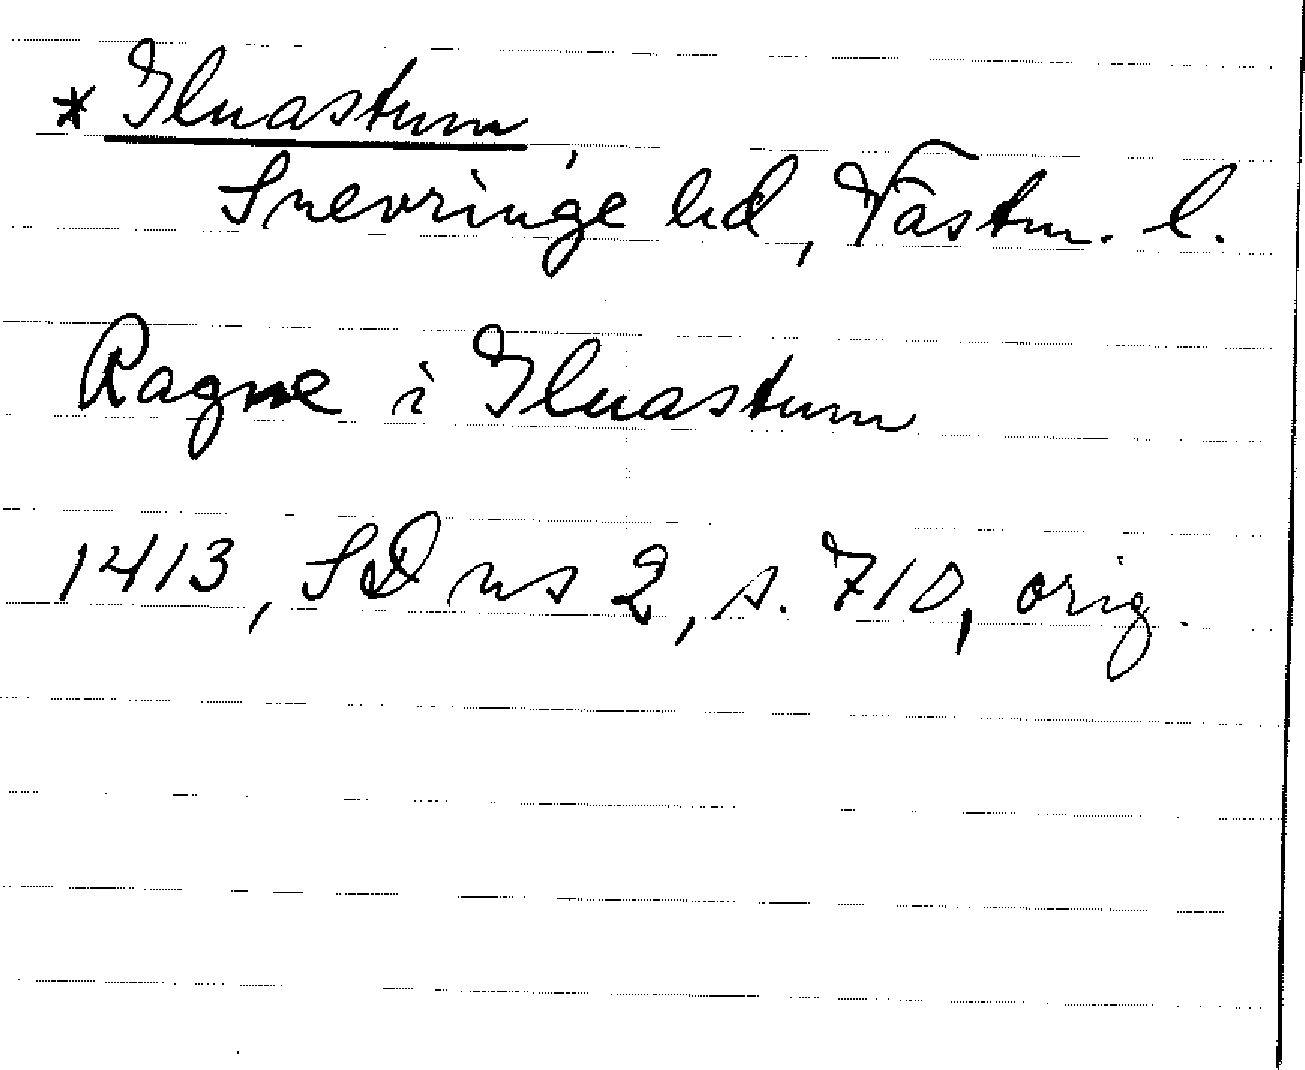 * Iluastum
Snevringe hd, Västm. l.
Ragne i Iluastum
1413, SD ns 2, s. 710, orig.